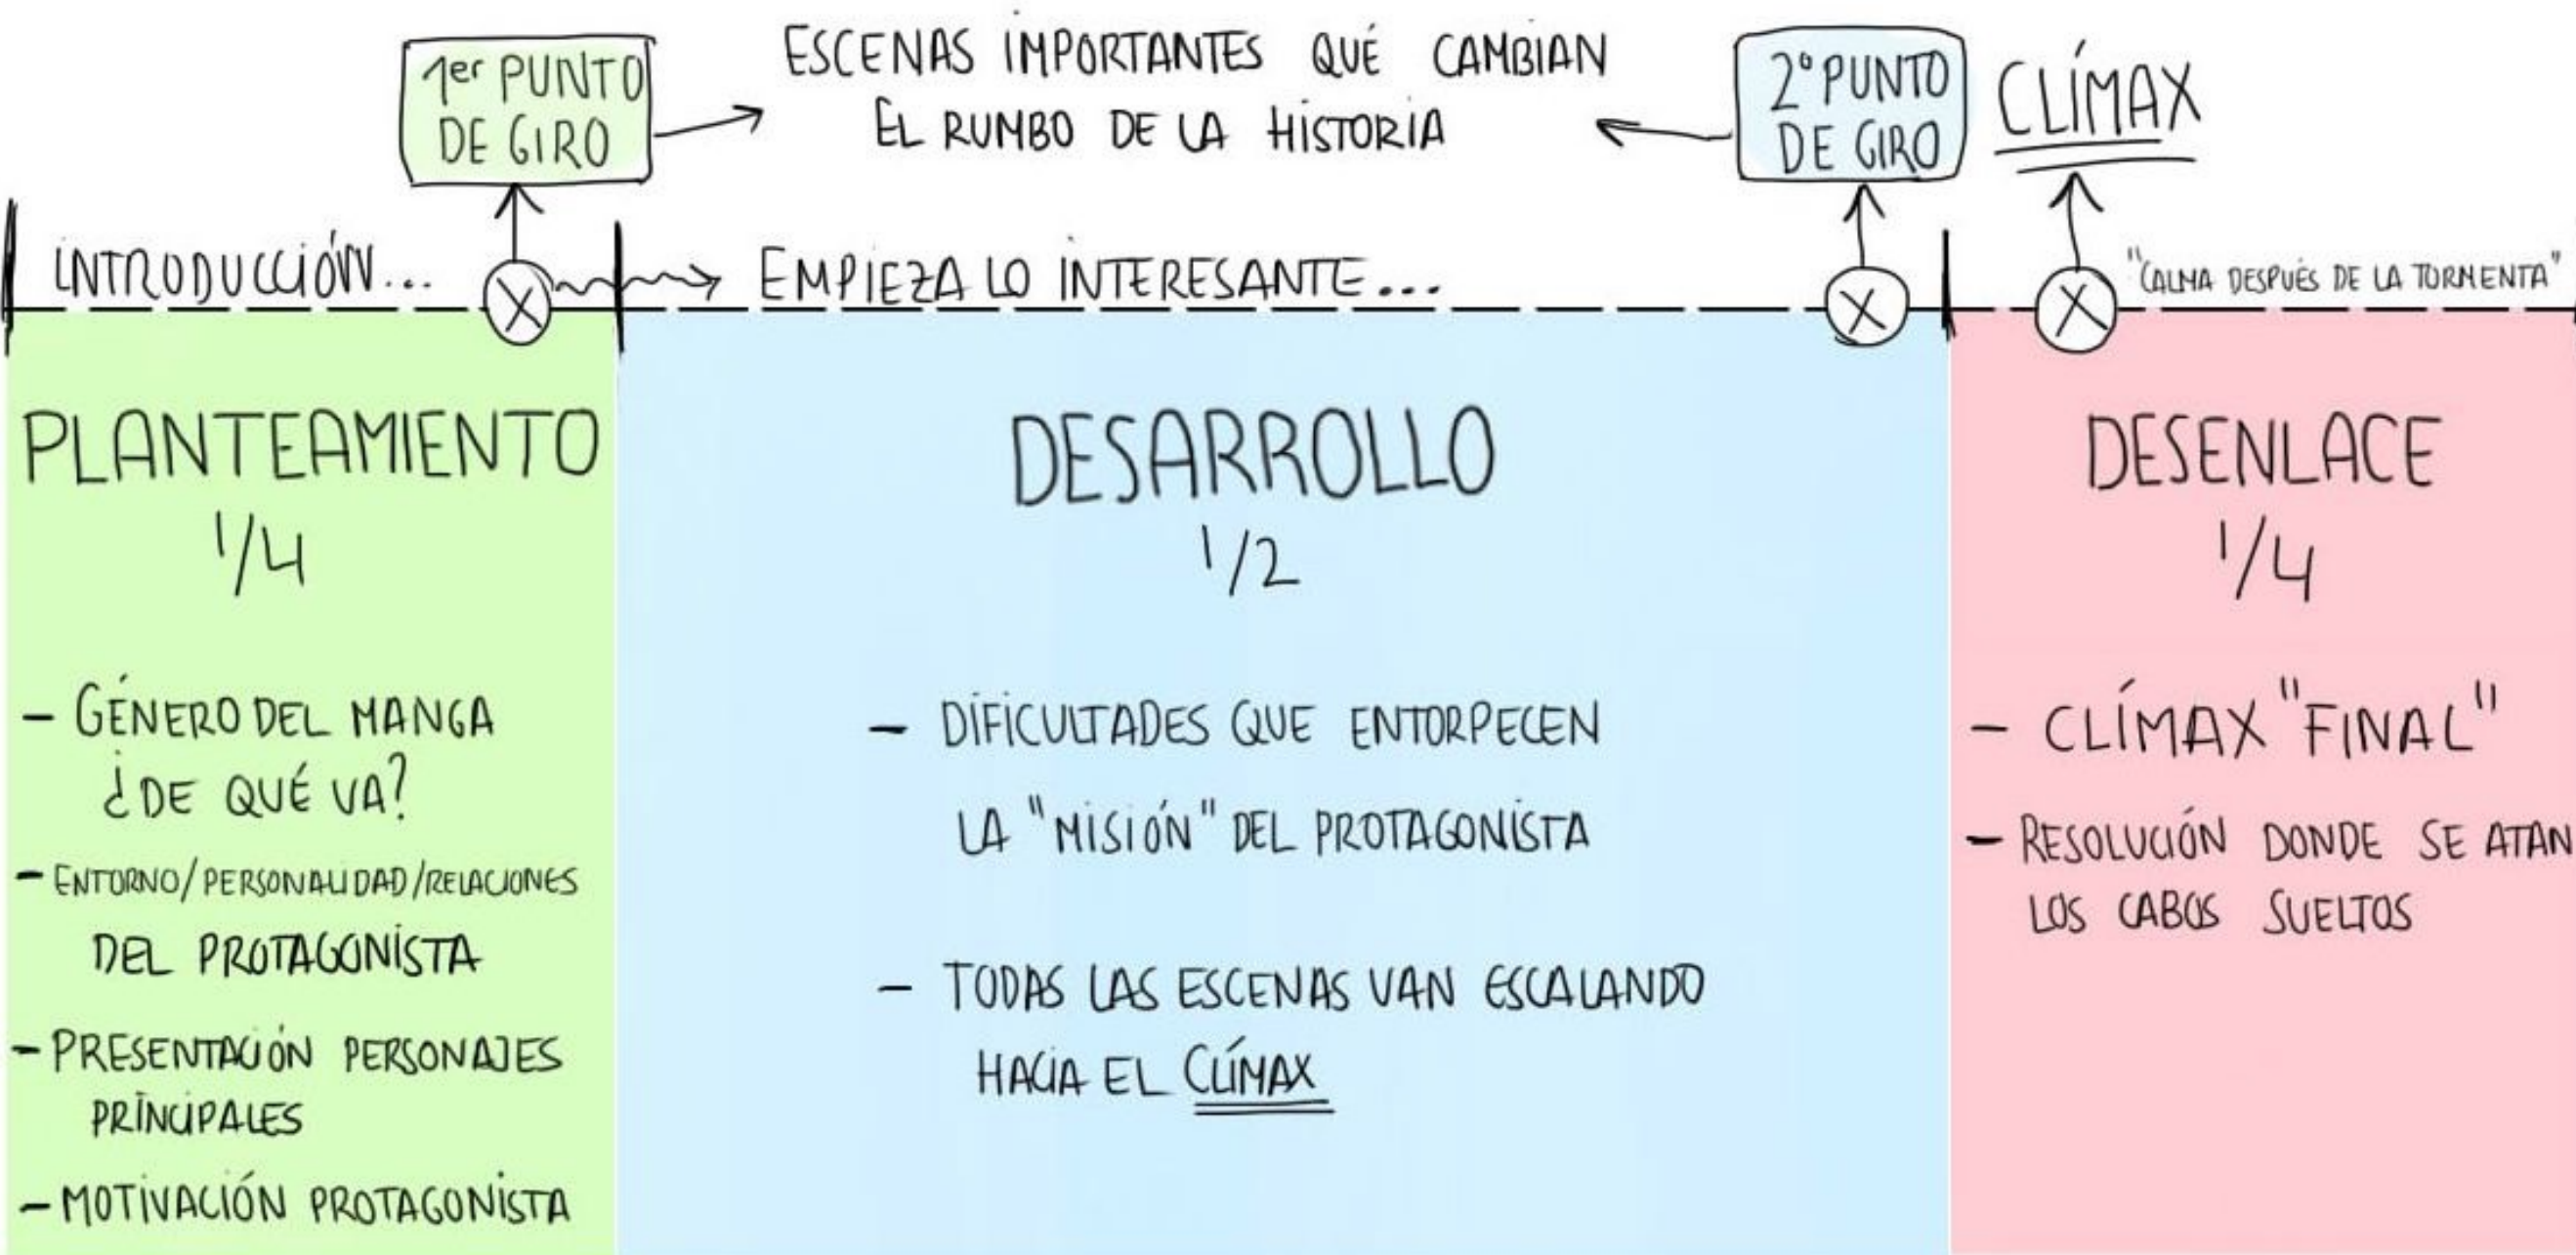 1er PUNTO
DE GIRO
ESCENAS IMPORTANTES QUÉ CAMBIAN
EL RUMBO DE LA HISTORIA
2º PUNTO
DE GIRO
CLÍMAX
INTRODUCCIÓN...
EMPIEZA LO INTERESANTE...
"CALMA DESPUÉS DE LA TORMENTA"
PLANTEAMIENTO
1/4
- GÉNERO DEL MANGA
¿DE QUÉ VA?
- ENTORNO/PERSONALIDAD/RELACIONES
DEL PROTAGONISTA
- PRESENTACIÓN PERSONAJES
PRINCIPALES
- MOTIVACIÓN PROTAGONISTA
DESARROLLO
1/2
- DIFICULTADES QUE ENTORPECEN
LA "MISIÓN" DEL PROTAGONISTA
- TODAS LAS ESCENAS VAN ESCALANDO
HACIA EL CLÍMAX
DESENLACE
1/4
- CLÍMAX "FINAL"
- RESOLUCIÓN DONDE SE ATAN
LOS CABOS SUELTOS